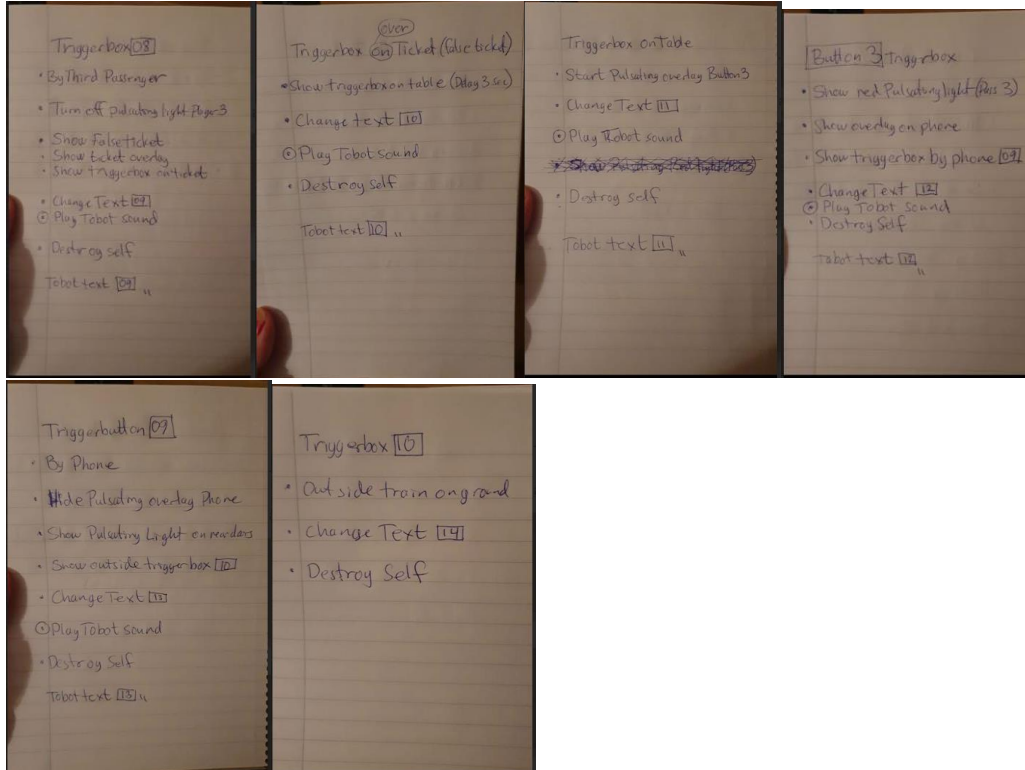 Triggerbox 08
• By Third Passenger
• Turn off pulsating light Pass 3
• Show False ticket
• Show ticket overlay
• Show triggerbox on ticket
• Change Text 09
• Play Tobot sound
• Destroy self
Tobot text 09 "
over
Triggerbox on Ticket (false ticket)
• Show triggerbox on table (Delay 3 sec)
• Change text 10
• Play Tobot sound
• Destroy self
Tobot text 10 "
Triggerbox on Table
• Start Pulsating overlay Button 3
• Change Text 11
• Play Tobot sound
• Destroy self
Tobot text 11 "
Button 3 Triggerbox
• Show red Pulsating light (Pass 3)
• Show overlay on phone
• Show triggerbox by phone 09
• Change Text 12
• Play Tobot sound
• Destroy Self
Tobot text 12 "
Triggerbutton 09
• By Phone
• Hide Pulsating overlay Phone
• Show Pulsating Light on
• Show outside triggerbox 10
• Change Text 13
• Play Tobot sound
• Destroy Self
Tobot text 13 "
Triggerbox 10
• Outside train on ground
• Change Text 14
• Destroy Self